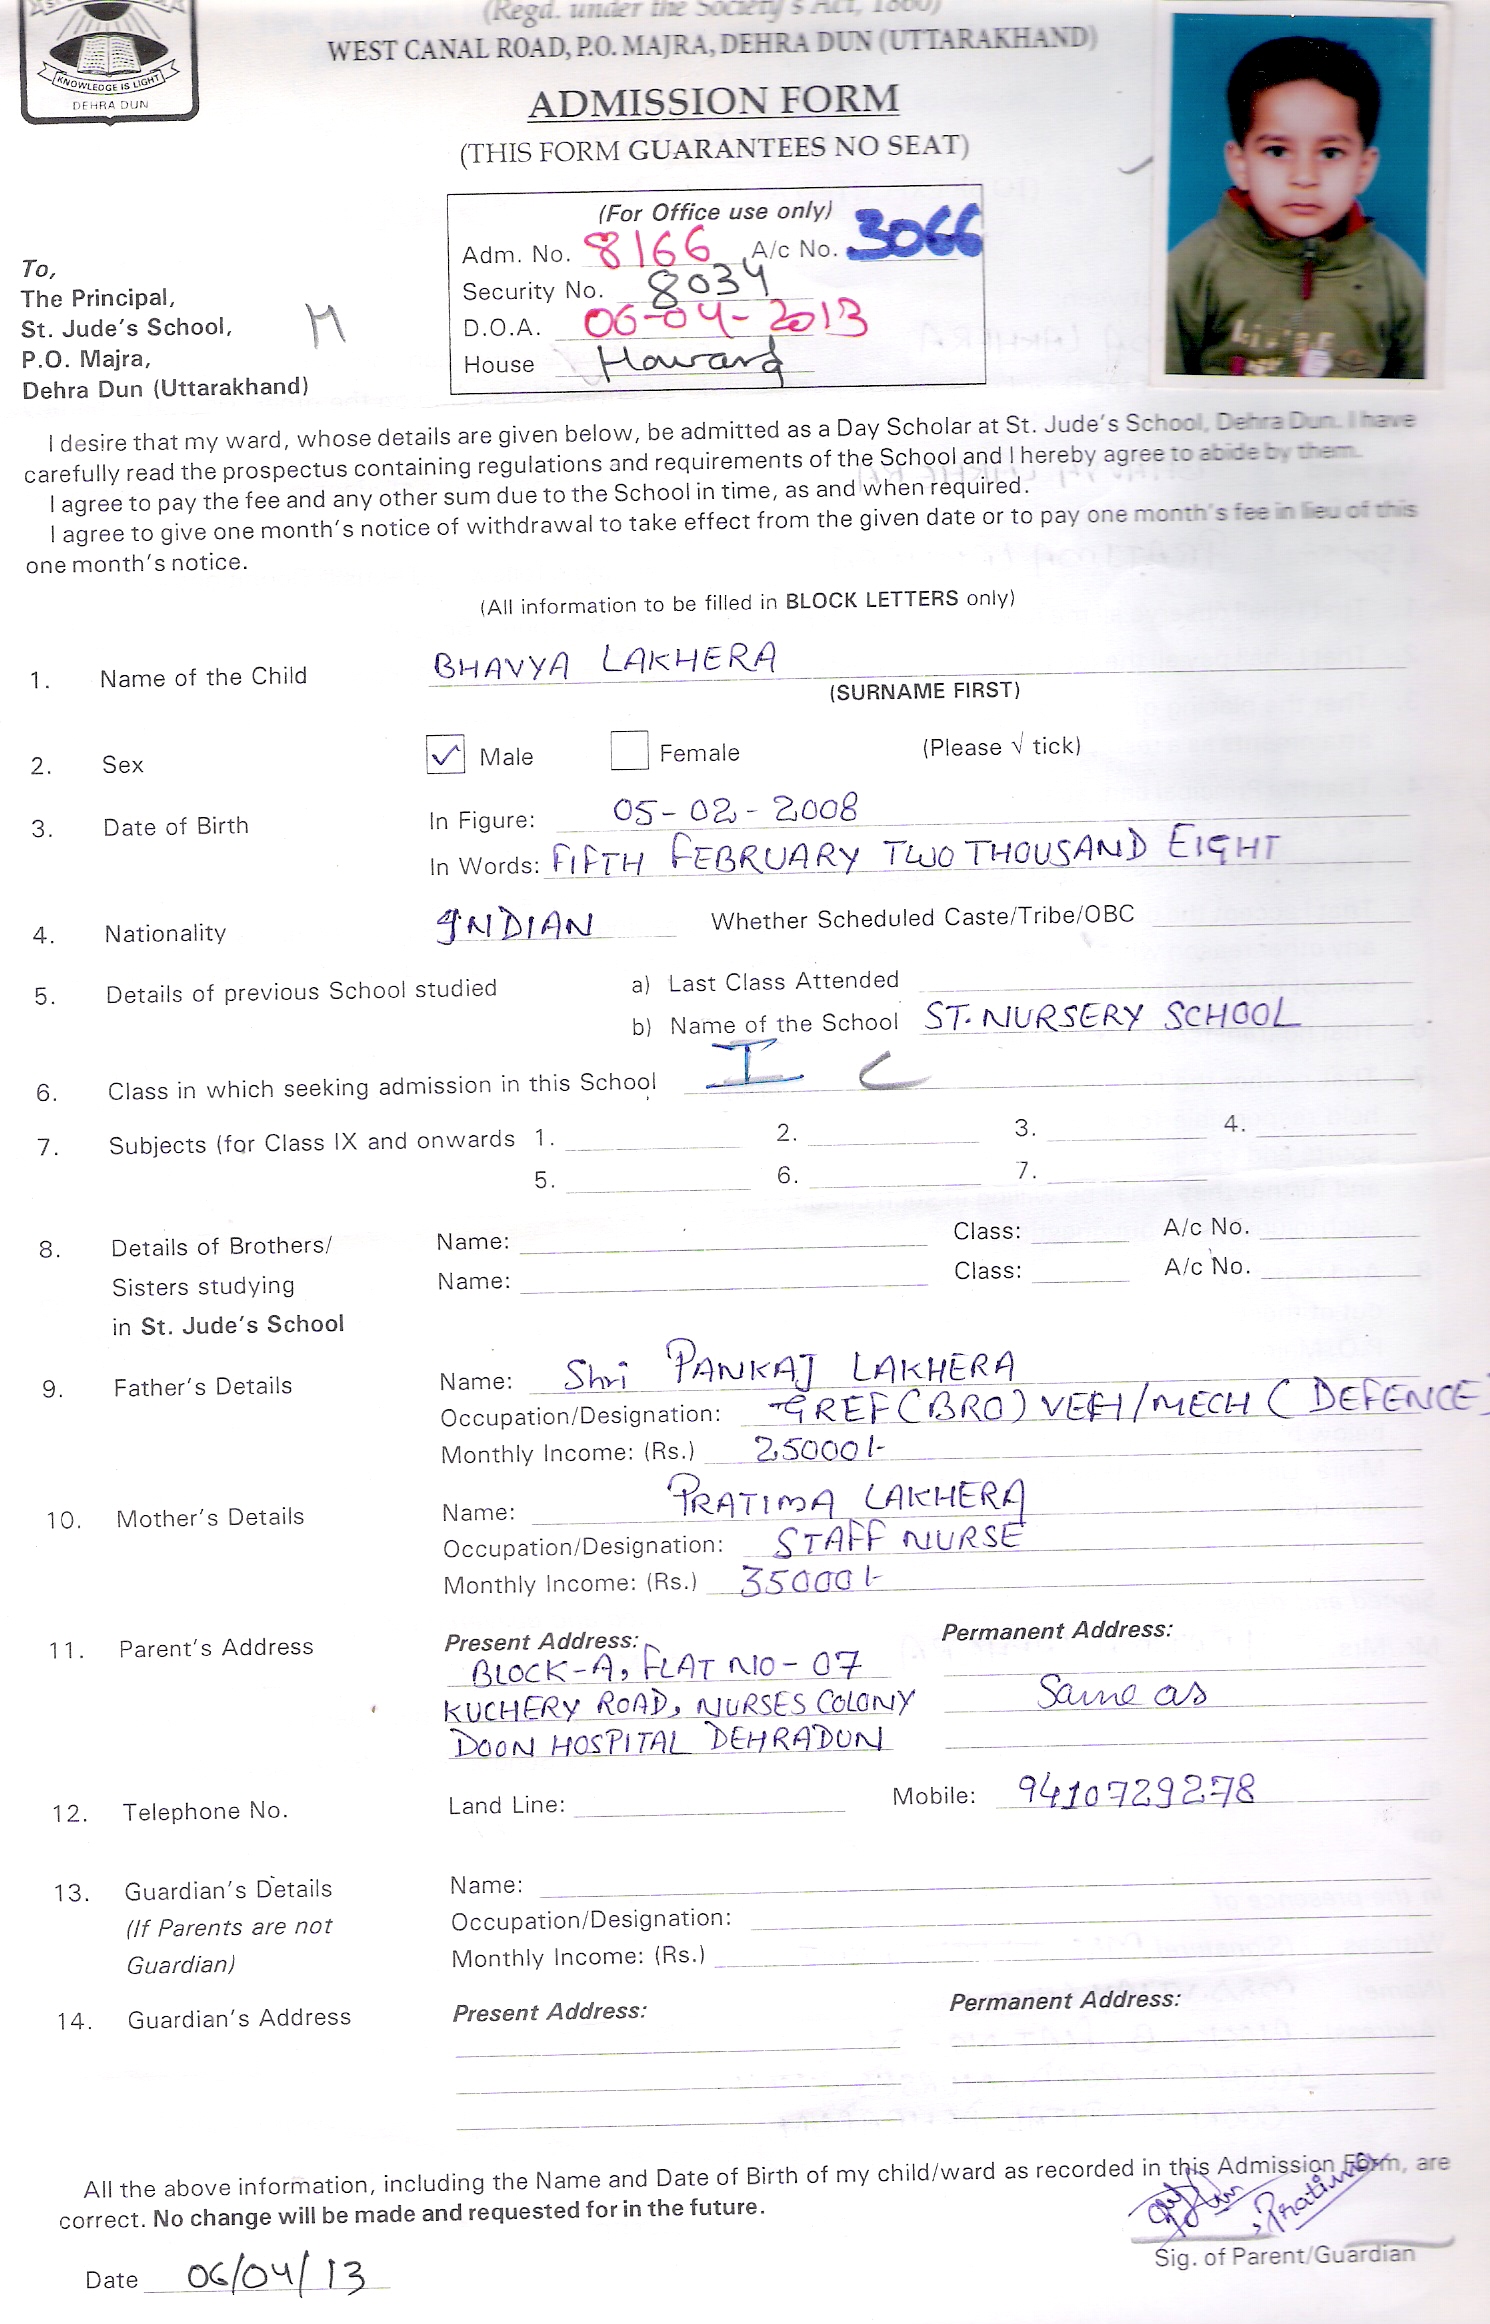 KNOWLEDGE IS LIGHT
DEHRA DUN
(Regd. under the Society's Act, 1860)
WEST CANAL ROAD, P.O. MAJRA, DEHRA DUN (UTTARAKHAND)
ADMISSION FORM
(THIS FORM GUARANTEES NO SEAT)
(For Office use only)
Adm. No. 8166 A/c No. 3066
Security No. 8034
D.O.A. 06-04-2013
House Howard
To,
The Principal,
St. Jude's School,
P.O. Majra,
Dehra Dun (Uttarakhand)
M
I desire that my ward, whose details are given below, be admitted as a Day Scholar at St. Jude's School, Dehra Dun. I have
carefully read the prospectus containing regulations and requirements of the School and I hereby agree to abide by them.
I agree to pay the fee and any other sum due to the School in time, as and when required.
I agree to give one month's notice of withdrawal to take effect from the given date or to pay one month's fee in lieu of this
one month's notice.
(All information to be filled in BLOCK LETTERS only)
1. Name of the Child BHAVYA LAKHERA
(SURNAME FIRST)
2. Sex ✓ Male Female (Please √ tick)
3. Date of Birth In Figure: 05-02-2008
In Words: FIFTH FEBRUARY TWO THOUSAND EIGHT
4. Nationality INDIAN Whether Scheduled Caste/Tribe/OBC
5. Details of previous School studied a) Last Class Attended
b) Name of the School ST. NURSERY SCHOOL
6. Class in which seeking admission in this School I C
7. Subjects (for Class IX and onwards 1. 2. 3. 4.
5. 6. 7.
8. Details of Brothers/ Name: Class: A/c No.
Sisters studying Name: Class: A/c No.
in St. Jude's School
9. Father's Details Name: Shri PANKAJ LAKHERA
Occupation/Designation: GREF (BRO) VEH/MECH (DEFENCE)
Monthly Income: (Rs.) 25000/-
10. Mother's Details Name: PRATIMA LAKHERA
Occupation/Designation: STAFF NURSE
Monthly Income: (Rs.) 35000/-
11. Parent's Address Present Address: Permanent Address:
BLOCK-A, FLAT NO-07
KUCHERY ROAD, NURSES COLONY Same as
DOON HOSPITAL DEHRADUN
12. Telephone No. Land Line: Mobile: 9410729278
13. Guardian's Details Name:
(If Parents are not Occupation/Designation:
Guardian) Monthly Income: (Rs.)
14. Guardian's Address Present Address: Permanent Address:
All the above information, including the Name and Date of Birth of my child/ward as recorded in this Admission Form, are
correct. No change will be made and requested for in the future.
Pratima
Sig. of Parent/Guardian
Date 06/04/13